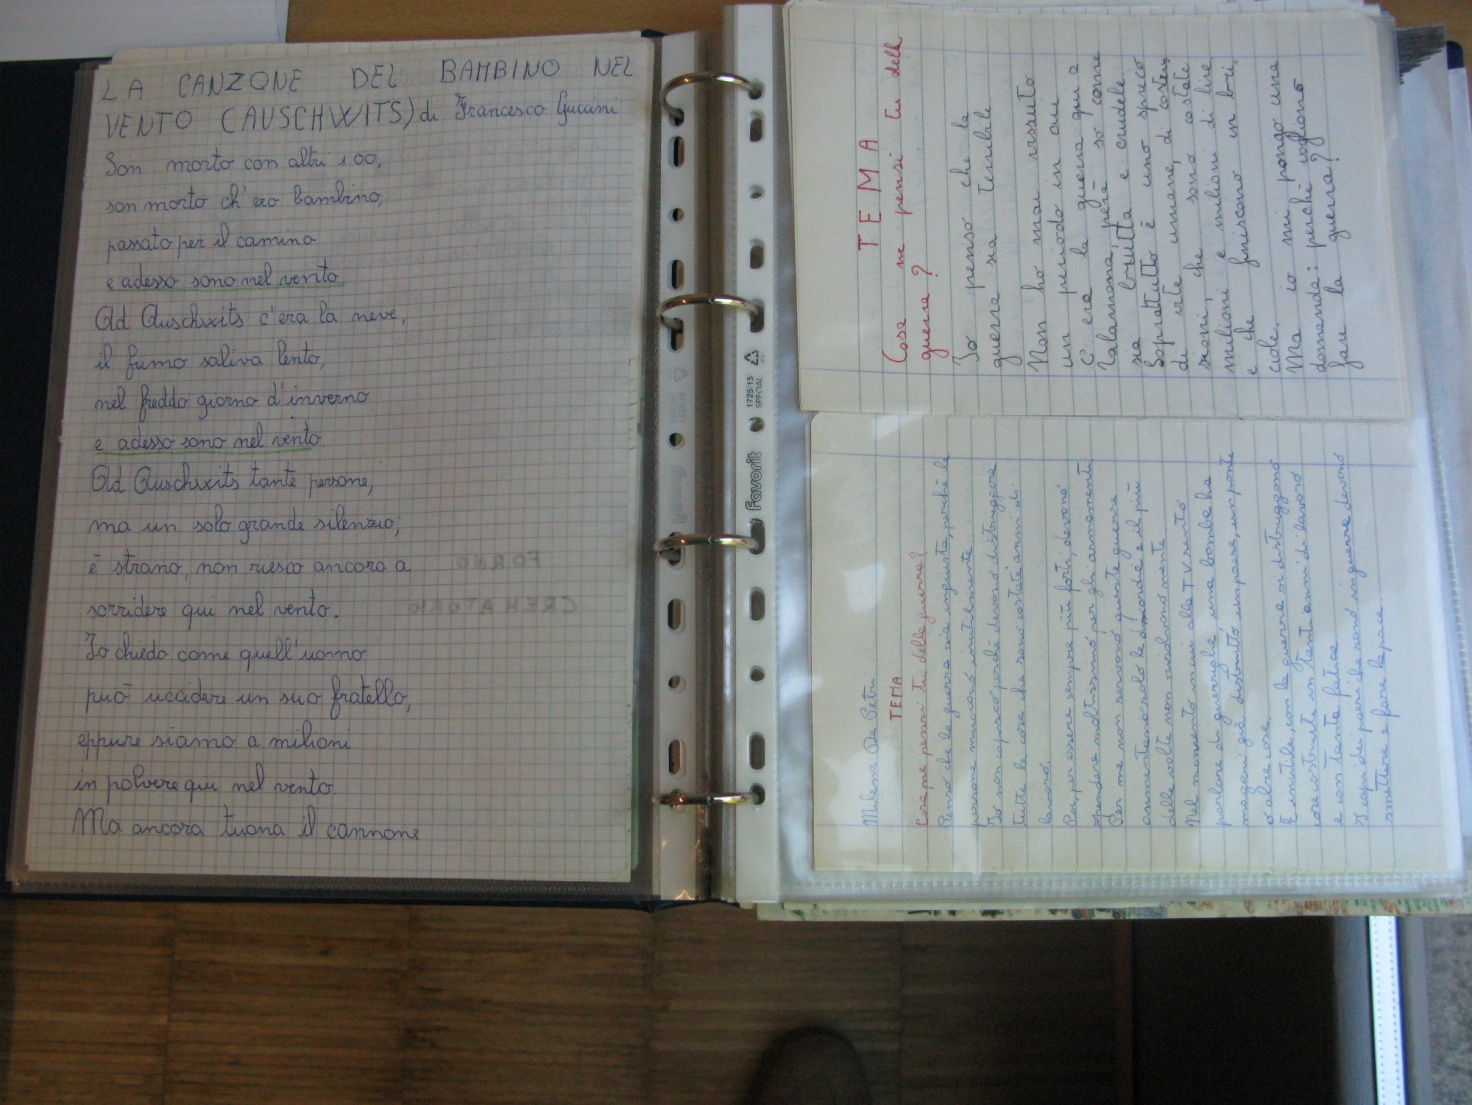 LA CANZONE DEL BAMBINO NEL
VENTO (AUSCHWITS) di Francesco Guccini
Son morto con altri 100,
son morto ch'ero bambino,
passato per il camino
e adesso sono nel vento.
Ad Auschwits c'era la neve,
il fumo saliva lento,
nel freddo giorno d'inverno
e adesso sono nel vento.
Ad Auschwits tante persone,
ma un solo grande silenzio;
è strano, non riesco ancora a
sorridere qui nel vento.
Io chiedo come quell'uomo
può uccidere un suo fratello,
eppure siamo a milioni
in polvere qui nel vento.
Ma ancora tuona il cannone
FORNO
CREMATORIO
Favorit
1725/15
SPECIAL
TEMA
Cosa ne pensi tu della
guerra?
Io penso che la
guerra sia terribile
Non ho mai vissuto
un periodo in cui a
c'era la guerra qui a
Talamona, però so come
sia brutta e crudele
Sopratutto è uno spreco
di vite umane, di
che sono costate
milioni e milioni di lire
e che finiscono in
Ma io mi pongo una
domanda: perchè vogliono
fare la guerra?
Milena De Petri
TEMA
Cosa ne pensi tu della guerra?
Penso che la guerra sia ingiusta, perchè le
persone muoiono inutilmente.
Io non capisco perchè devono distruggere
tutte le cose che sono costate anni di
lavoro.
Poi, per essere sempre più forti, devono
spendere moltissimo per gli armamenti.
Per me non servono queste guerre
aumentano solo le discordie e il più
delle volte non risolvono niente.
Nel momento in cui alla TV sento
parlare di guerriglie, una bomba ha
magari già distrutto un paese, un ponte
o altre cose.
È inutile, con la guerra si distruggono
cose costruite in tanti anni di lavoro
e con tanta fatica.
I capi dei paesi che sono in guerra devono
smettere e fare la pace.